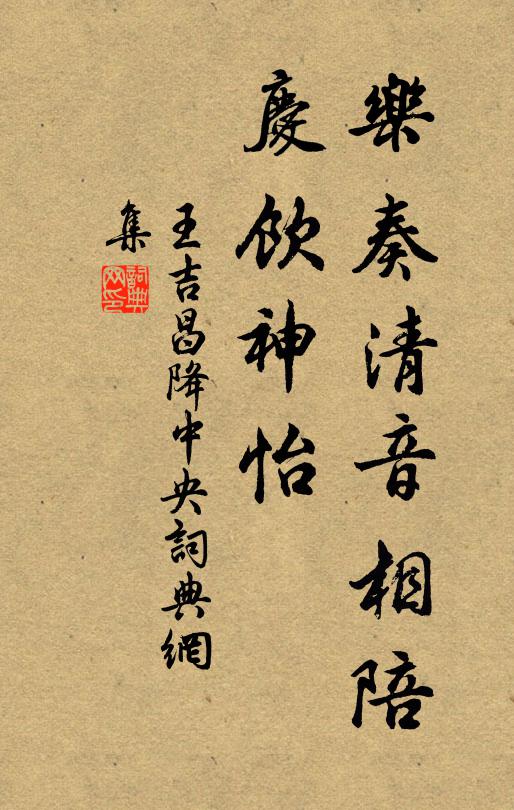 樂奏清音相陪
慶飲神怡
王吉昌降中央詞典網
集
詞典網印